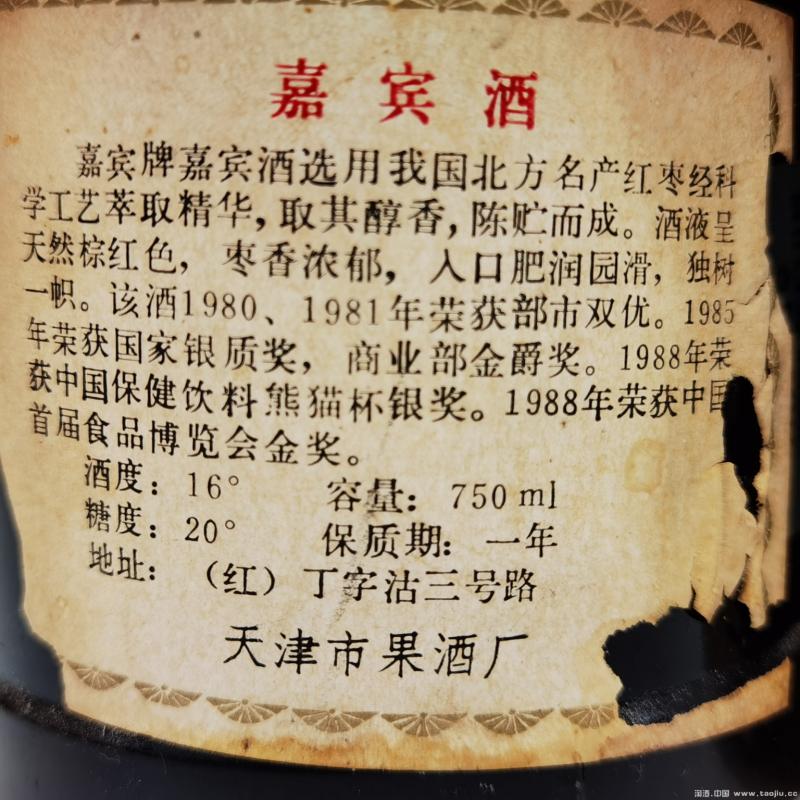 嘉宾酒
嘉宾牌嘉宾酒选用我国北方名产红枣经科
学工艺萃取精华，取其醇香，陈贮而成。酒液呈
天然棕红色，枣香浓郁，入口肥润园滑，独树
一帜。该酒1980、1981年荣获部市双优。1985
年荣获国家银质奖，商业部金爵奖。1988年荣
获中国保健饮料熊猫杯银奖。1988年荣获中国
首届食品博览会金奖。
酒度：16° 容量：750ml
糖度：20° 保质期：一年
地址：（红）丁字沽三号路
天津市果酒厂
淘酒.中国 www.taojiu.cc